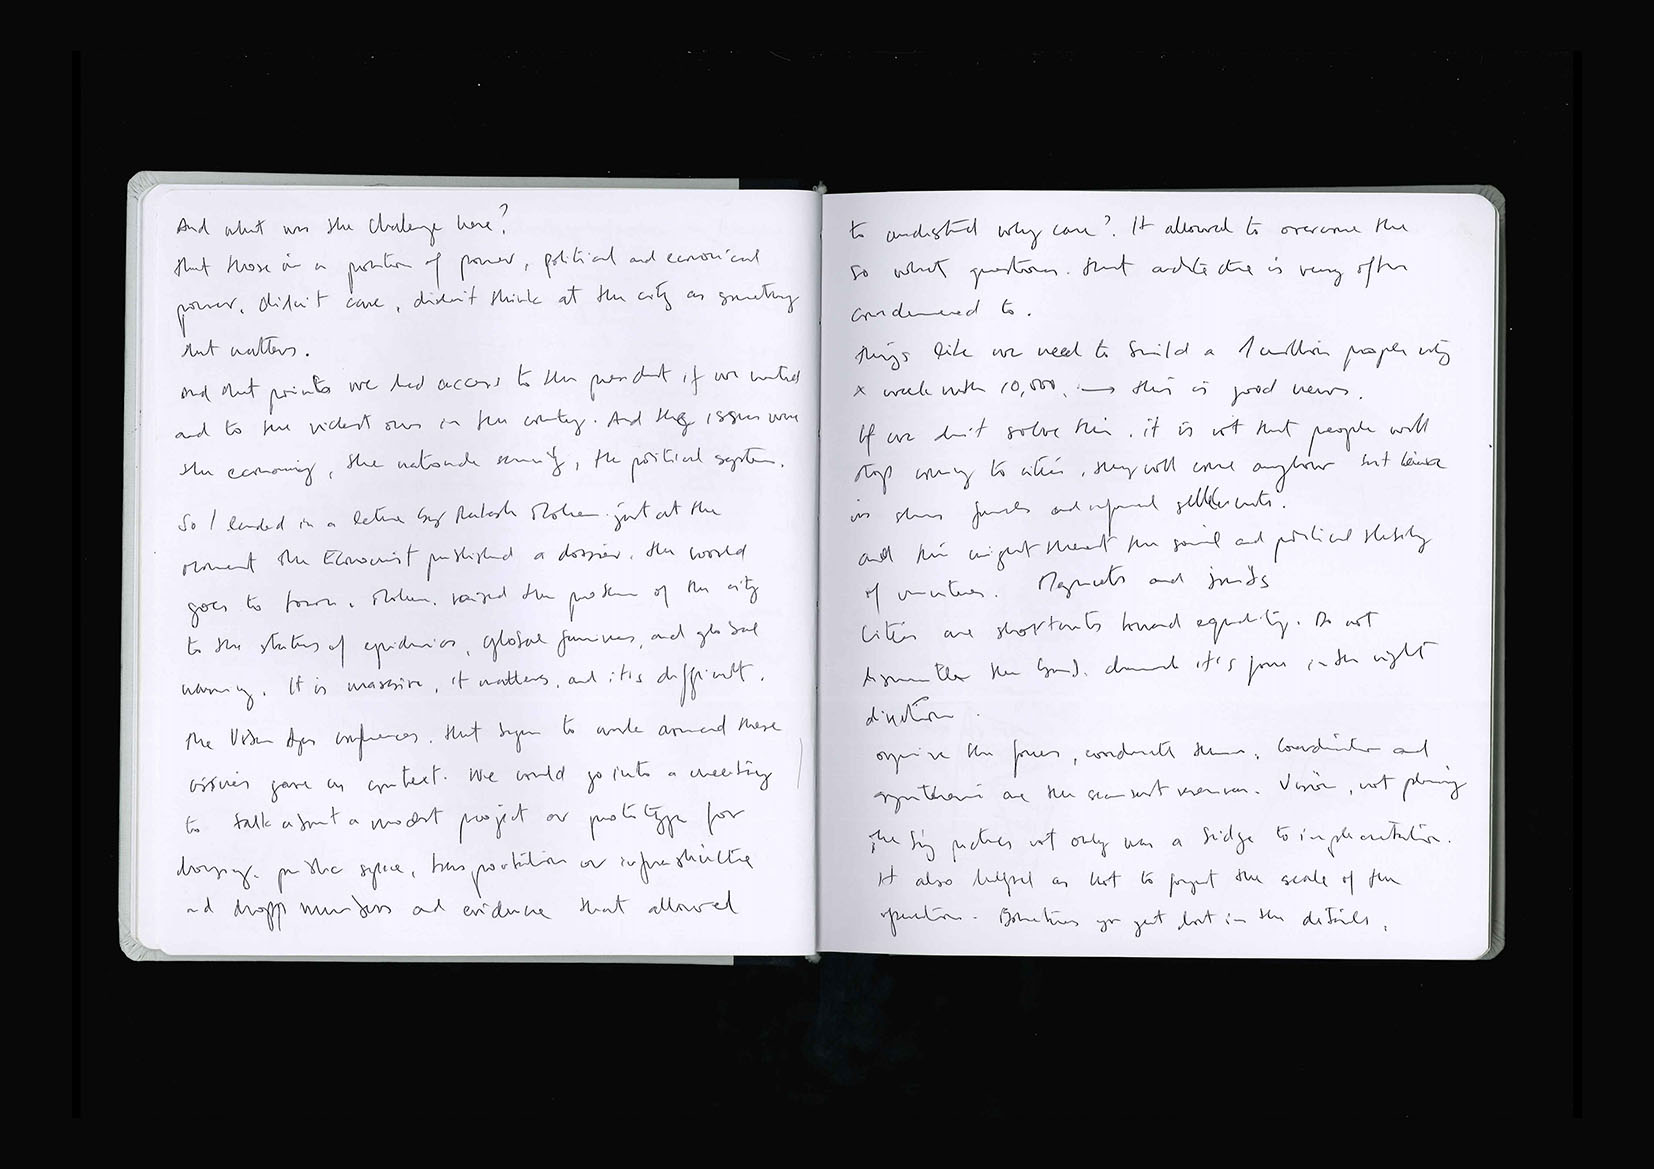 And what was the challenge here?
that those in a position of power, political and economical
power, didn't care, didn't think at the city as something
that matters.
And that point we had access to the president if we wanted
and to the richest ones in the country. And they issues were
the economy, the nationwide security, the political system.
So I landed in a lecture by Rakesh Mohan just at the
moment the Economist published a dossier. the world
goes to town. Mohan. raised the problem of the city
to the status of epidemics, global famines, and global
warming. It is massive, it matters, and it is difficult.
The Urban Age conferences. that began to work around these
issues gave us context. We could go into a meeting
to talk about a modest project or prototype for
housing. public space, transportation or infrastructure
and drop numbers and evidence that allowed
to understand why care?. It allowed to overcome the
so what questions. that architecture is very often
condemned to.
things like we need to build a 1 million people city
x week with 10,000. → this is good news.
If we don't solve this. it is not that people will
stop coming to cities, they will come anyhow but
in slums favelas and informal settlements.
and this might threat the social and political stability
of countries. Magnets and bombs
Cities are shortcuts toward equality. Do not
the bomb. channel it's power in the right
direction.
organize the forces, coordinate them. Coordination and
synthesis are the scarcest resources. Vision, not planning
the big picture not only was a bridge to implementation.
It also helped us not to forget the scale of the
question. Sometimes you get lost in the details.